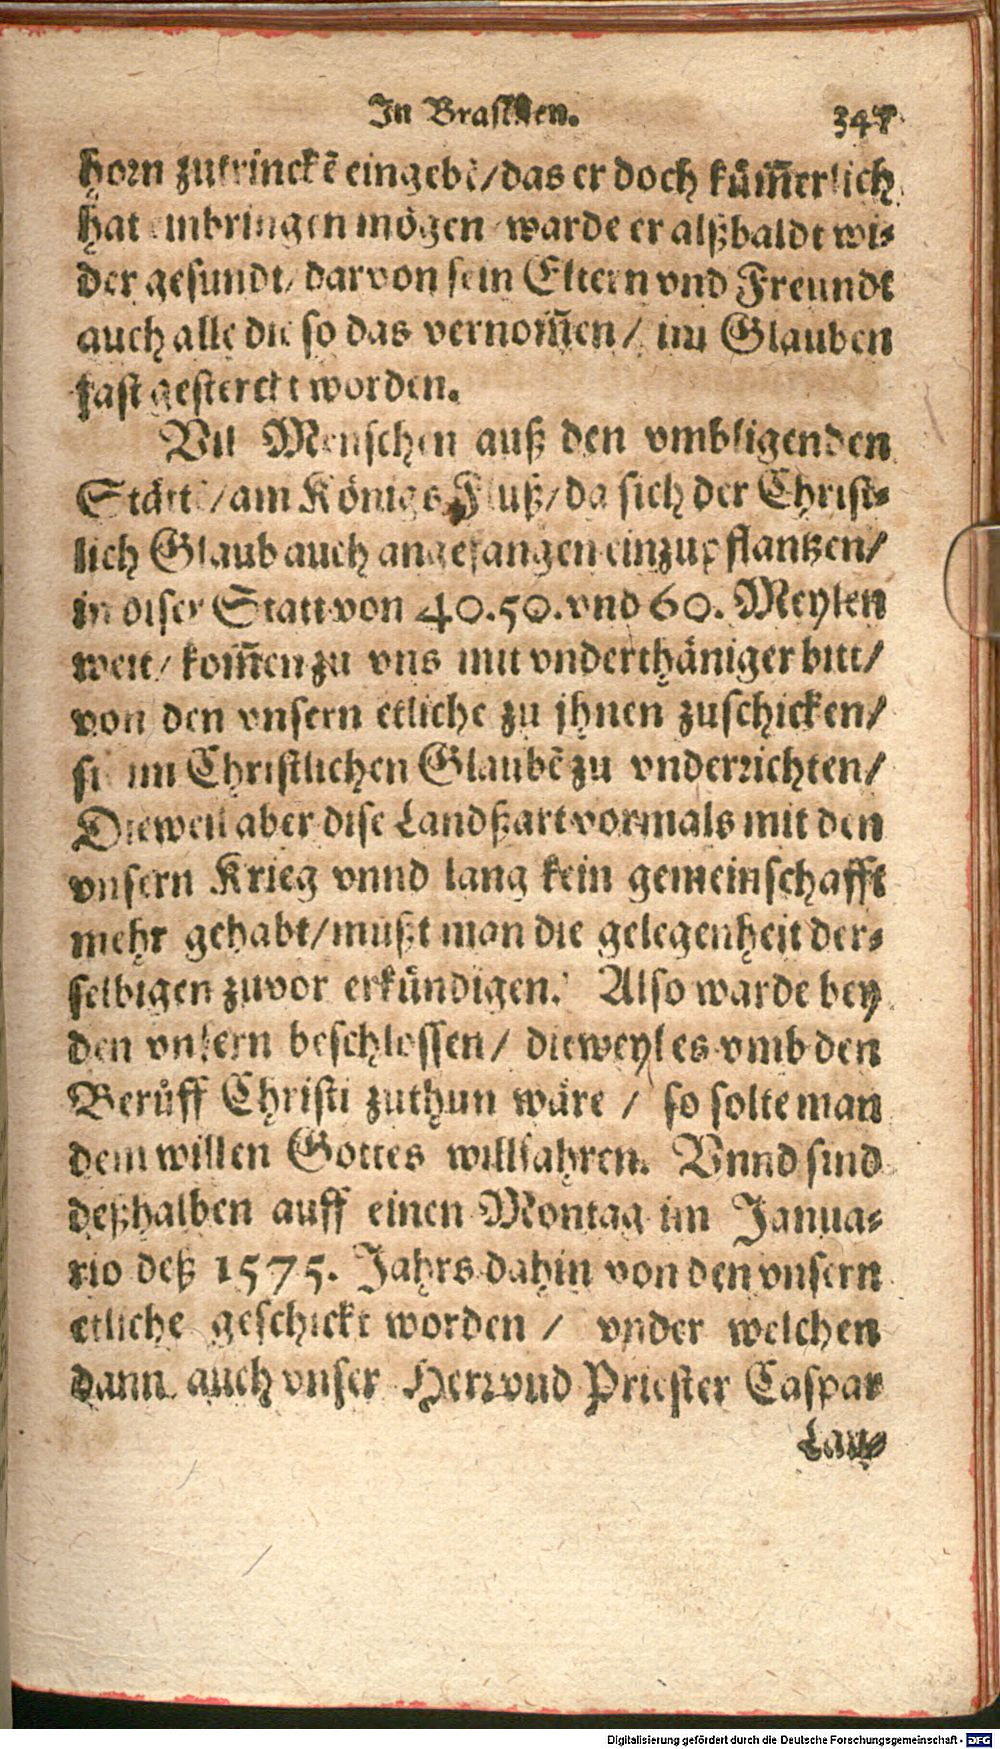 In Brasilien. 347
horn zutrinckẽ eingebẽ/das er doch kům̃erlich
hat einbringen mögen warde er alßbaldt wi-
der gesundt/ darvon sein Eltern vnd Freundt
auch alle die so das vernom̃en/ im Glauben
fast gesterckt worden.
Vil Menschen auß den vmbligenden
Stätt/am Königs Fluß/da sich der Christ-
lich Glaub auch angefangen einzupflantzen/
in diser Statt von 40.50. vnd 60. Meylen
weit/ kom̃en zu vns mit vnderthäniger bitt/
von den vnsern etliche zu jhnen zuschicken/
si im Christlichen Glaubẽ zu vnderrichten/
Dieweil aber dise Landßart vormals mit den
vnsern Krieg vnnd lang kein gemeinschafft
mehr gehabt/mußt man die gelegenheit der-
selbigen zuvor erkündigen. Also warde bey
den vnsern beschlossen/ dieweyl es vmb den
Berůff Christi zuthun wäre / so solte man
dem willen Gottes willfahren. Vnnd sind
deßhalben auff einen Montag im Janua-
rio deß 1575. Jahrs dahin von den vnsern
etliche geschickt worden / vnder welchen
dann auch vnser Herr vnd Priester Caspar
Digitalisierung gefördert durch die Deutsche Forschungsgemeinschaft - DFG